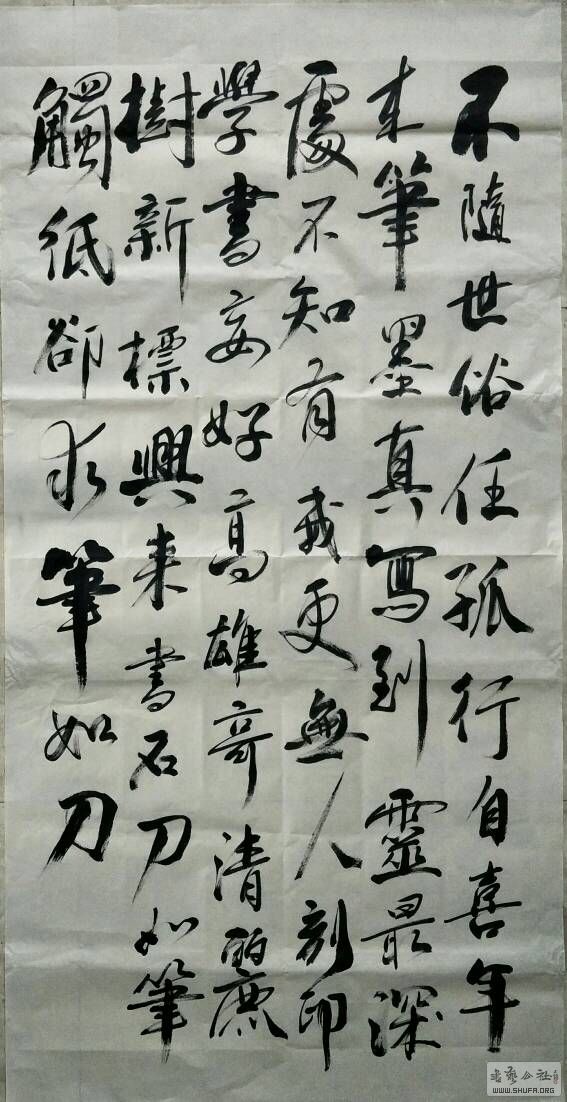 不隨世俗任孤行自喜年
来筆墨真寫到靈最深
處不知有我更無人刻印
學書妄好高雄奇清麗
樹新標興来書石刀如筆
觸紙卻求筆如刀
书艺公社
WWW.SHUFA.ORG